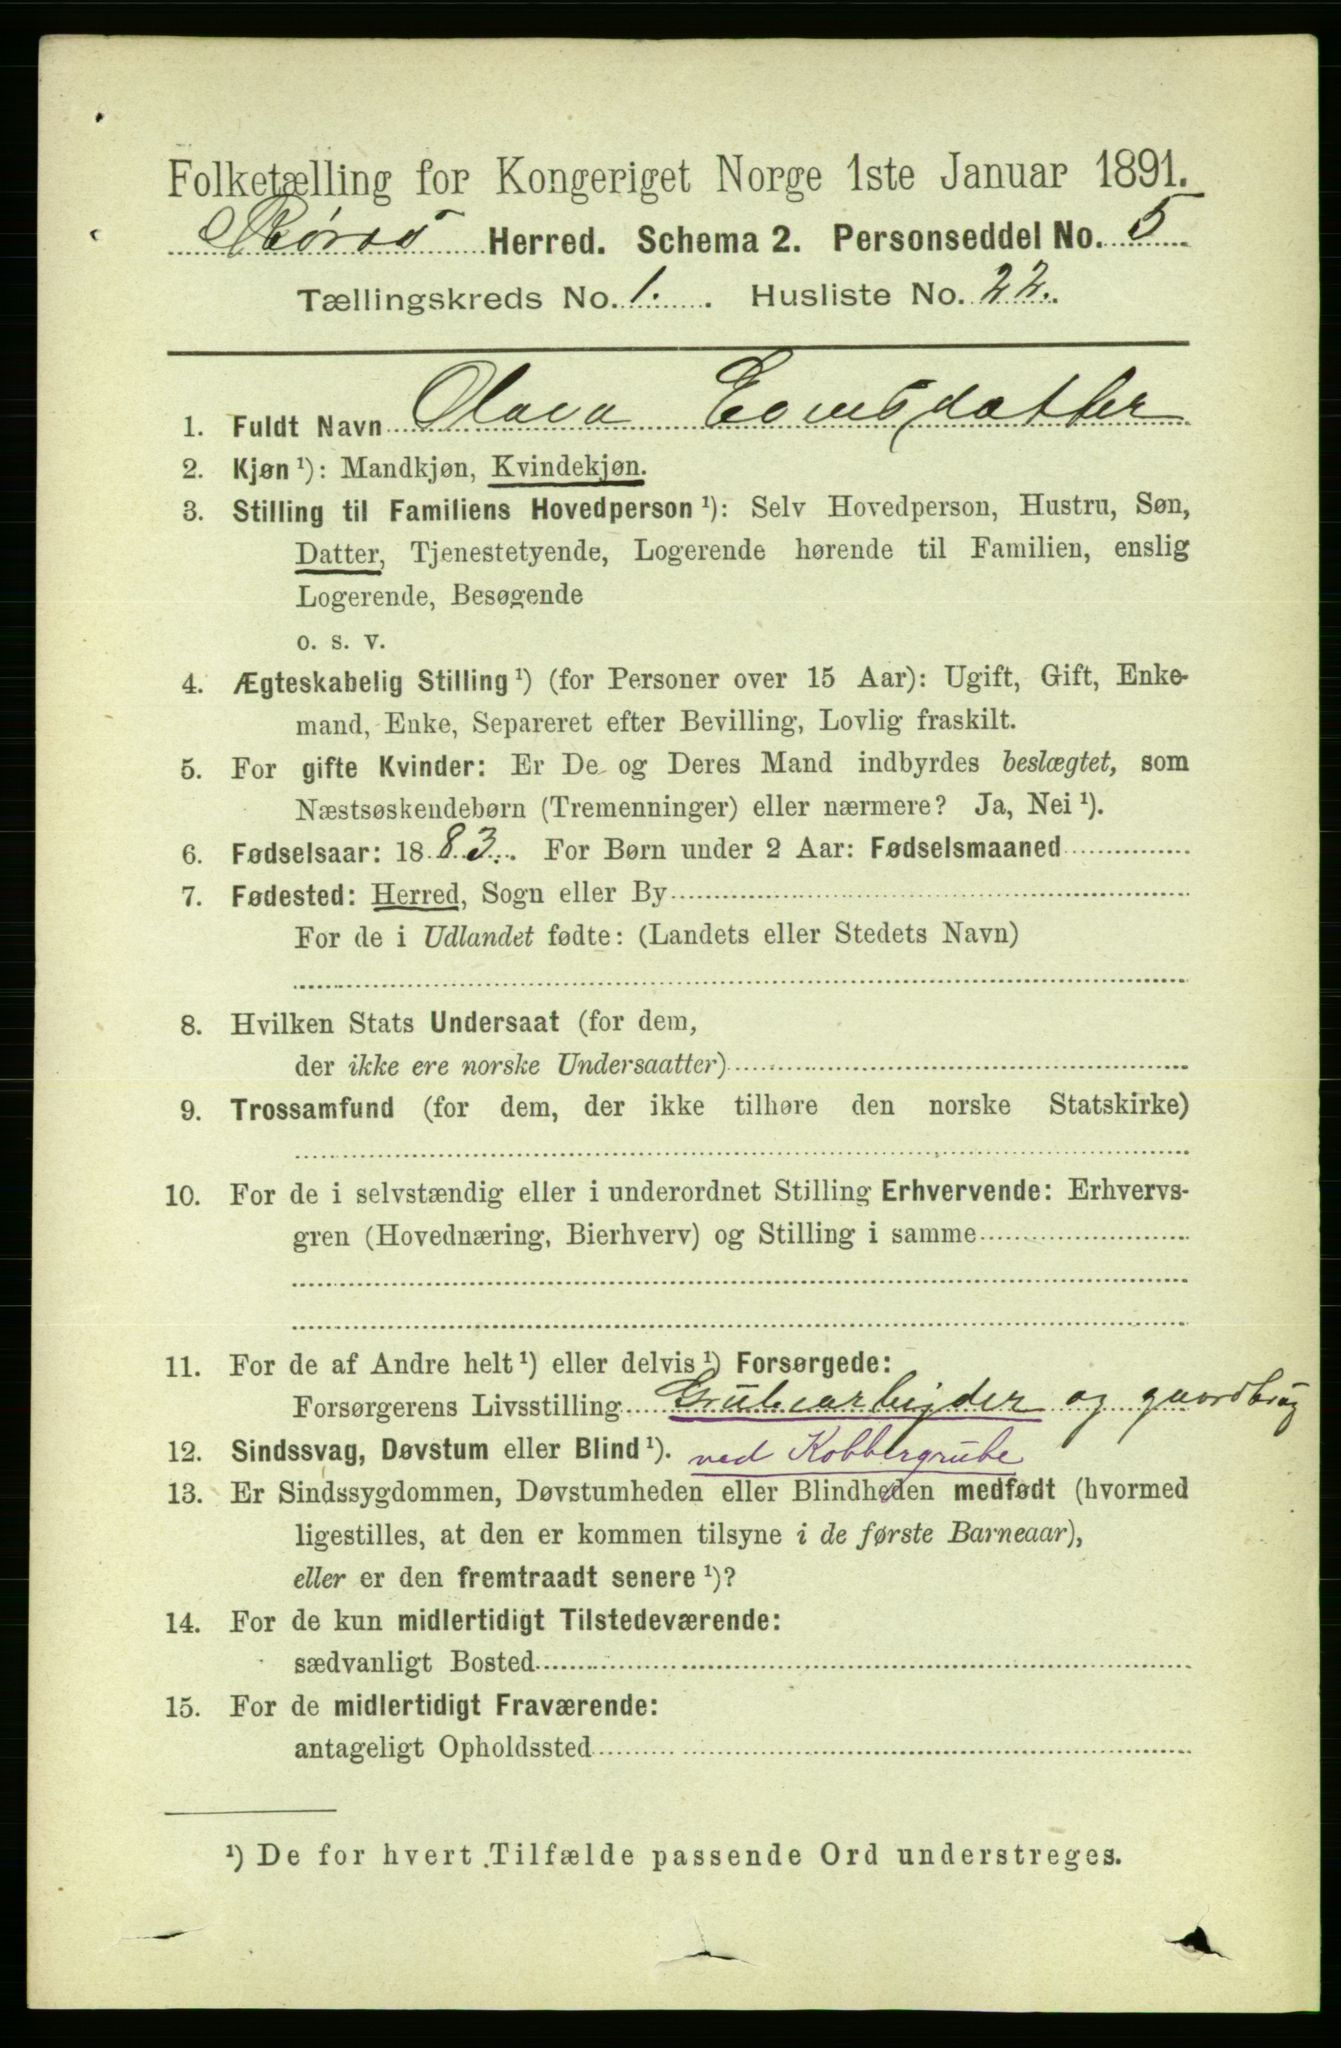 Folketælling for Kongeriget Norge 1ste Januar 1891.
Røros Herred. Schema 2. Personseddel No. 5
Tællingskreds No. 1. Husliste No. 22.
1. Fuldt Navn Olava Evensdatter
2. Kjøn ¹): Mandkjøn, Kvindekjøn.
3. Stilling til Familiens Hovedperson ¹): Selv Hovedperson, Hustru, Søn,
Datter, Tjenestetyende, Logerende hørende til Familien, enslig
Logerende, Besøgende
o. s. v.
4. Ægteskabelig Stilling ¹) (for Personer over 15 Aar): Ugift, Gift, Enke-
mand, Enke, Separeret efter Bevilling, Lovlig fraskilt.
5. For gifte Kvinder: Er De og Deres Mand indbyrdes beslægtet, som
Næstsøskendebørn (Tremenninger) eller nærmere? Ja, Nei ¹).
6. Fødselsaar: 1883. For Børn under 2 Aar: Fødselsmaaned
7. Fødested: Herred, Sogn eller By
For de i Udlandet fødte: (Landets eller Stedets Navn)
8. Hvilken Stats Undersaat (for dem,
der ikke ere norske Undersaatter)
9. Trossamfund (for dem, der ikke tilhøre den norske Statskirke)
10. For de i selvstændig eller i underordnet Stilling Erhvervende: Erhvervs-
gren (Hovednæring, Bierhverv) og Stilling i samme
11. For de af Andre helt ¹) eller delvis ¹) Forsørgede:
Forsørgerens Livsstilling Grubearbejder og gaardbrug
12. Sindssvag, Døvstum eller Blind ¹). ved Kobbergrube
13. Er Sindssygdommen, Døvstumheden eller Blindheden medfødt (hvormed
ligestilles, at den er kommen tilsyne i de første Barneaar),
eller er den fremtraadt senere ¹)?
14. For de kun midlertidigt Tilstedeværende:
sædvanligt Bosted
15. For de midlertidigt Fraværende:
antageligt Opholdssted
¹) De for hvert Tilfælde passende Ord understreges.